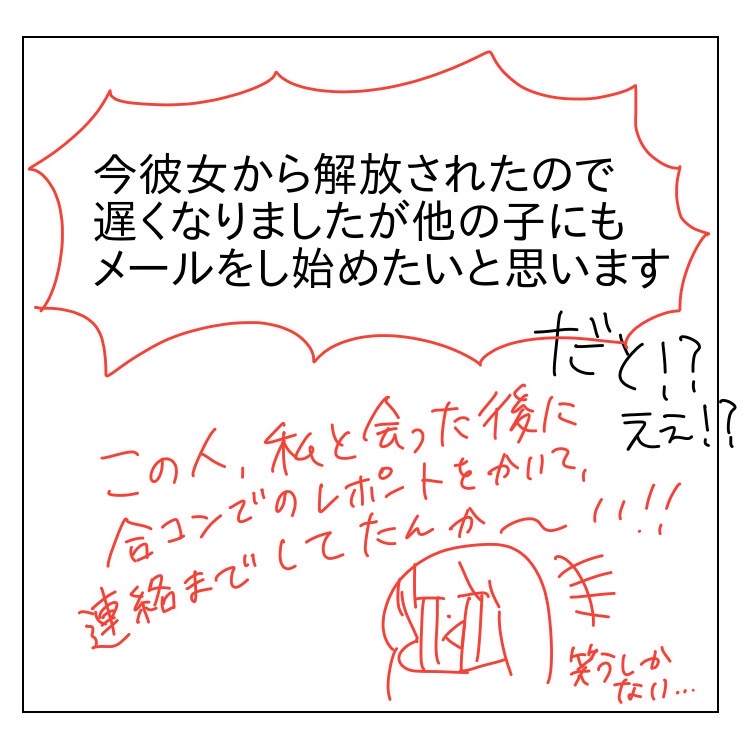 今彼女から解放されたので
遅くなりましたが他の子にも
メールをし始めたいと思います
だと!?
ええ!?
この人、私と会った後に
合コンでのレポートをかいて、
連絡までしてたんか〜い!!
笑うしか
ない…